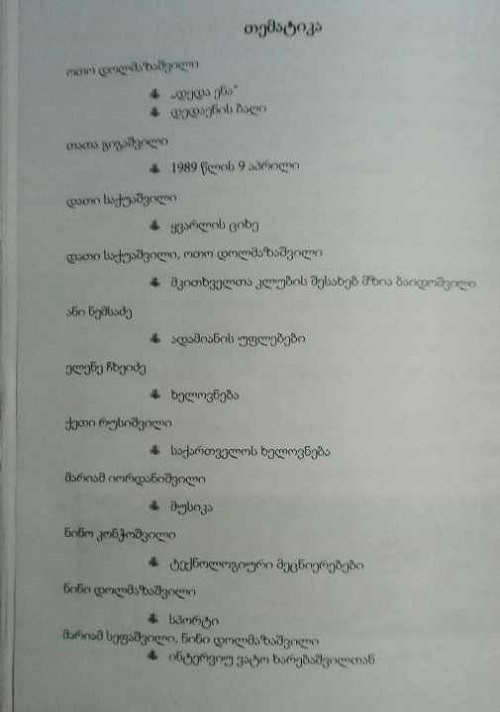 თემატიკა
ოთო დოლმაზაშვილი
„დედა ენა"
დედაენის ბაღი
თათა გიგაშვილი
1989 წლის 9 აპრილი
დათი საქუაშვილი
ყვარლის ციხე
დათი საქუაშვილი, ოთო დოლმაზაშვილი
მკითხველთა კლუბის შესახებ მზია ბაიდოშვილი
ანი ნემსაძე
ადამიანის უფლებები
ელენე ჩხეიძე
ხელოვნება
ქეთი რუსიშვილი
საქართველოს ხელოვნება
მარიამ იორდანიშვილი
მუსიკა
ნინო კონჭოშვილი
ტექნოლოგიური მეცნიერებები
ნინი დოლმაზაშვილი
სპორტი
მარიამ სეფაშვილი, ნინი დოლმაზაშვილი
ინტერვიუ ვატო ხარებაშვილთან